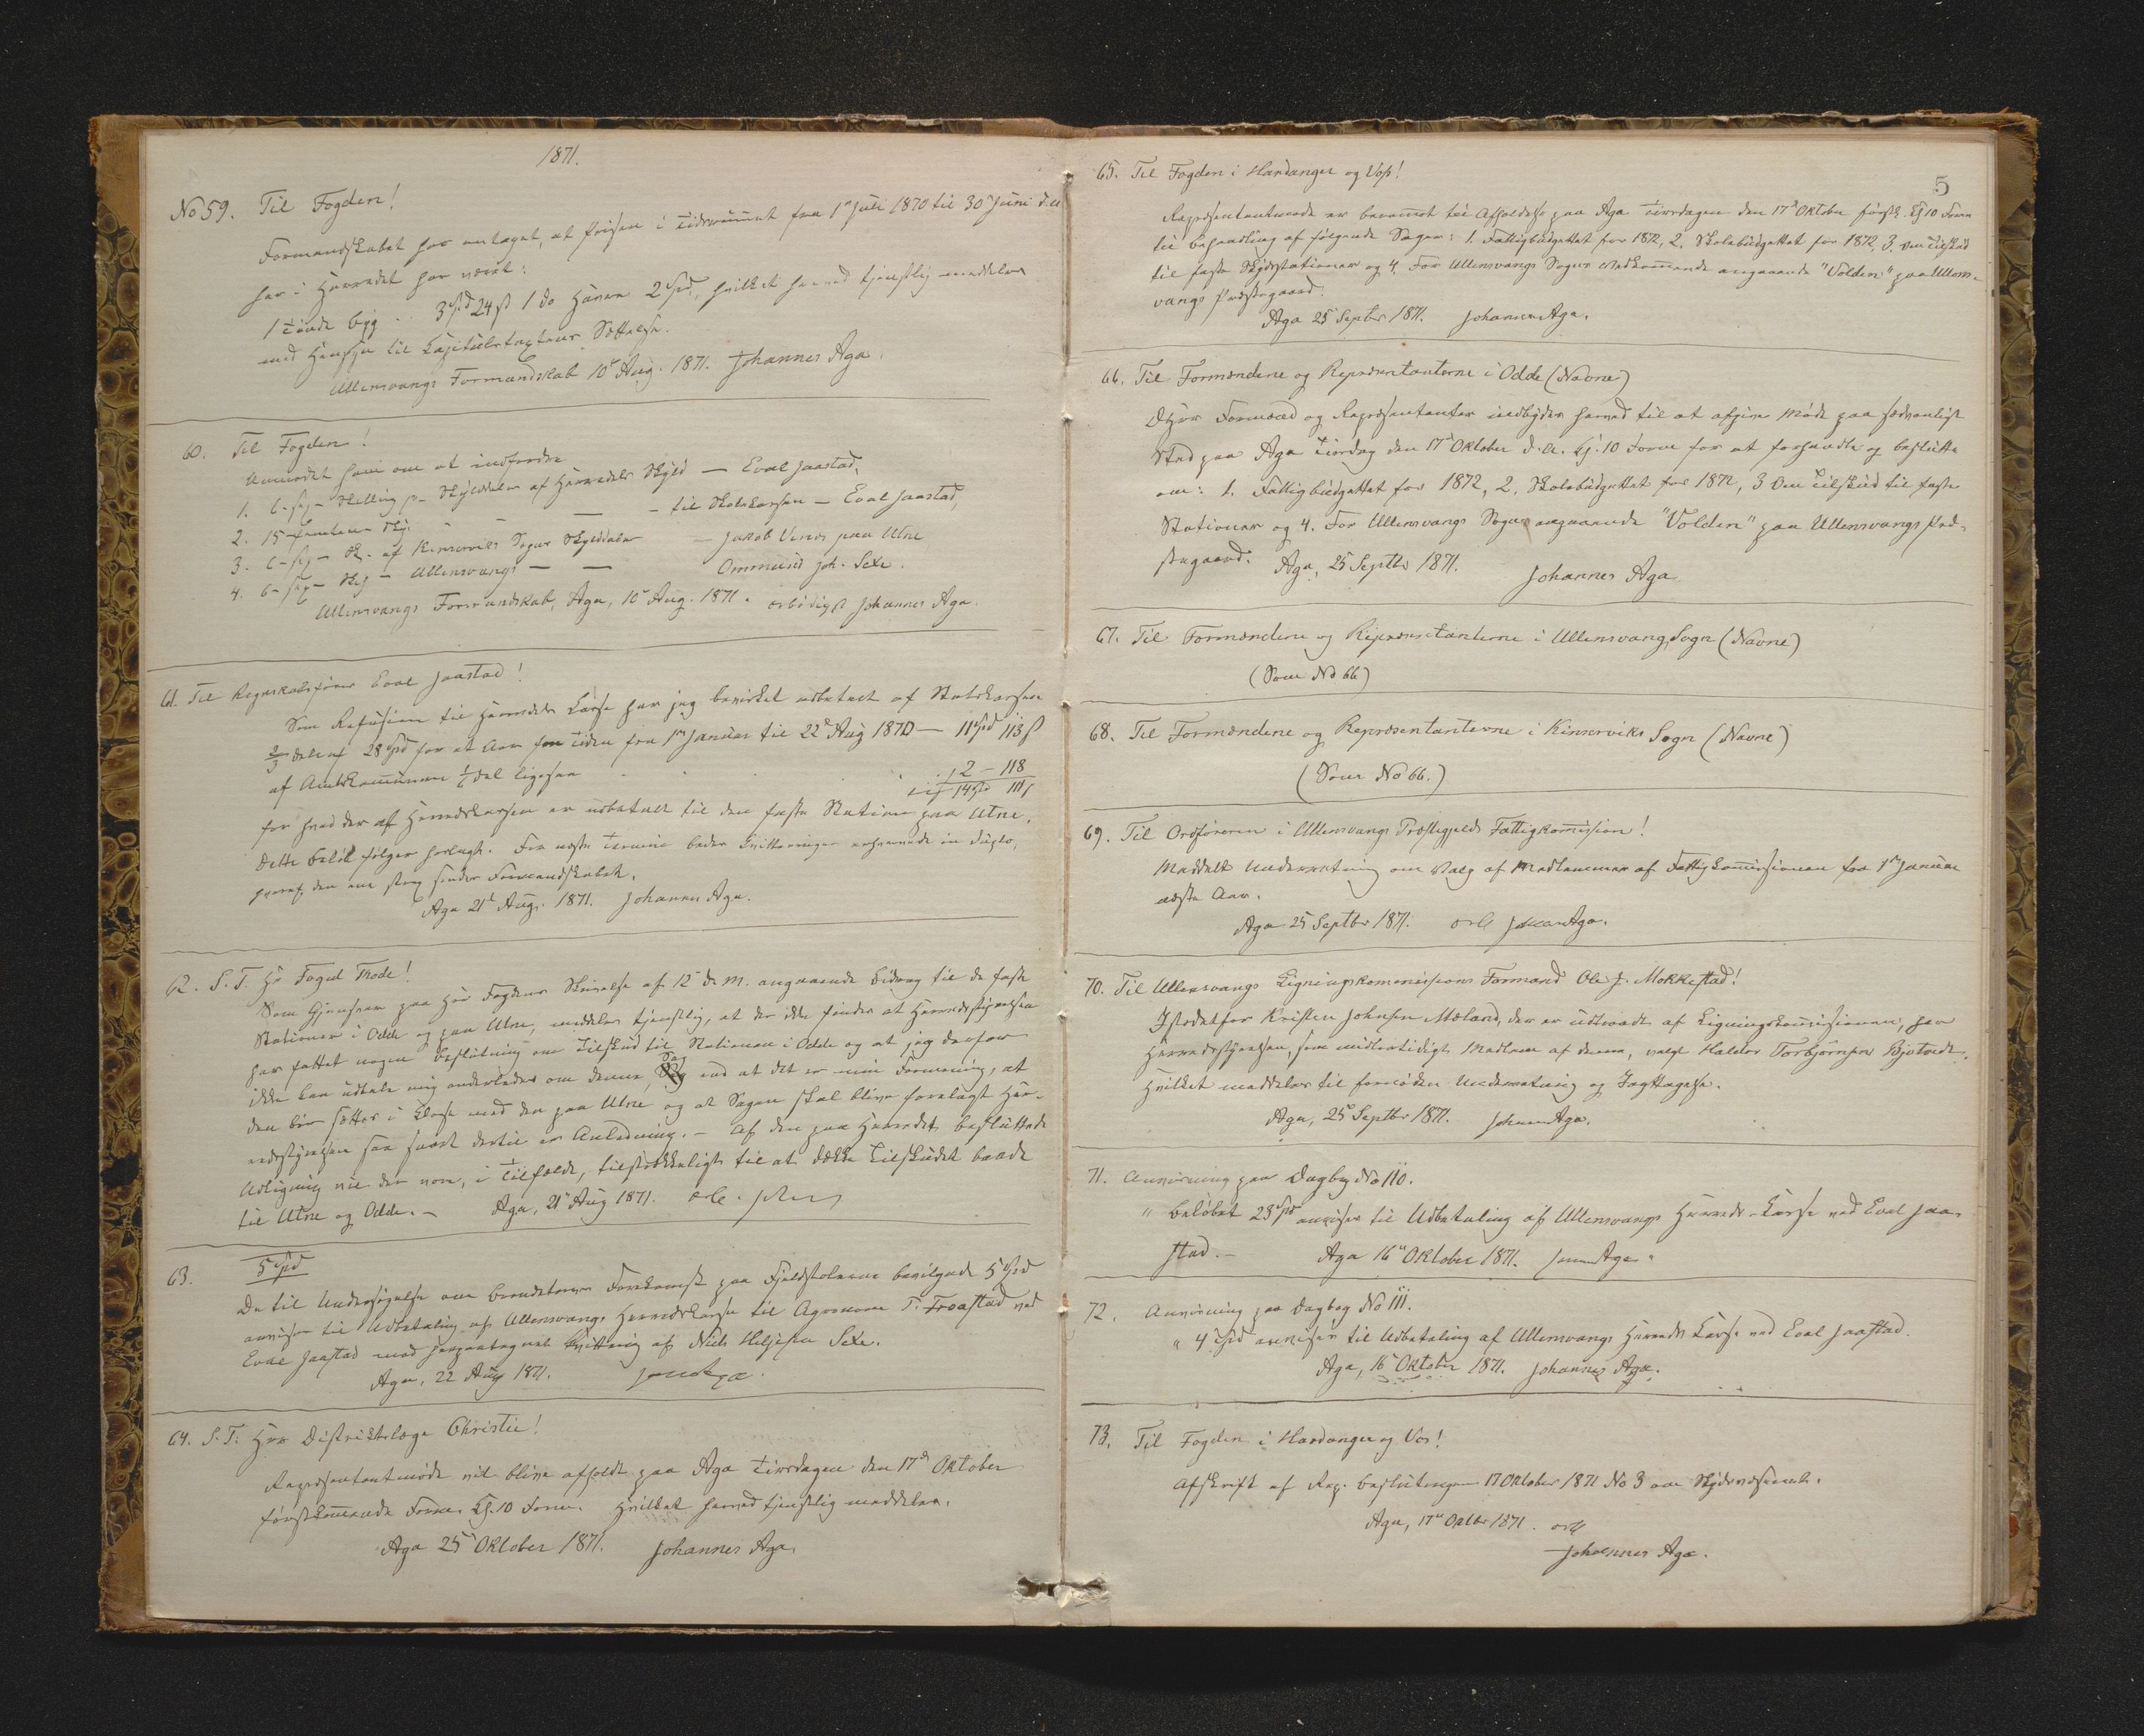 1871.
No 59. Til Fogden!
Formandskabet har antaget, at Prisen i Tidsrummet fra 1ste Juli 1870 til 30te Juni d.A.
her i Herredet har været:
1 Tønde Byg .. 3 Spd 24 ß 1 do Havre 2 Spd, hvilket herved tjenstlig meddeles
med Hensyn til Capitelstaxtens Sættelse.
Ullensvangs Formandskab 10de Aug. 1871. Johannes Aga.
60. Til Fogden!
Anmodet ham om at indfordre
1. 6 - sex - Skilling pr Skylddaler af Herredets Skyld — Eval Jaastad,
2. 15 - femten - Skj. - - — - til Skolekassen - Eval Jaastad,
3. 6 - sex - Sk. af Kinserviks Sogns Skylddaler — Jakob Vines paa Utne
4. 6 - sex - Skj - Ullensvangs — — Ommund Joh. Sexe.
Ullensvangs Formandskab, Aga, 10de Aug. 1871. ærbødigst Johannes Aga.
61. Til Regnskabsfører Eval Jaastad!
Som Refusion til Herredets Kasse har jeg bevirket udbetalt af Statskassen
2/3 dele af 28 Spd for et Aar for Tiden fra 1ste Januar til 22de Aug 1870 — 11 Spd 113 ß
af Amtskommunen 1/6 Del ligesaa . . . 2 - 118
14 Spd 111 ß
for hvad der af Herredskassen er udbetalt til den faste Station paa Utne.
Dette Beløb følger hoslagt. For næste Termin bedes Kvitteringen erhvervede in duplo,
hvoraf den ene strax sendes Formandskabet.
Aga 21de Aug. 1871. Johannes Aga.
62. S. T. Hr Foged Thode!
Som Gjensvar paa Hr Fogdens Skrivelse af 12 d. M. angaaende Bidrag til de faste
Stationer i Odde og paa Utne, meddeles tjenstlig, at der ikke findes at Herredsstyrelsen
har fattet nogen Beslutning om Tilskud til Stationen i Odde og at jeg derfor
ikke kan udtale mig anderledes om denne, Sag end at det er min Formening, at
den bør sættes i Klasse med den paa Utne og at Sagen skal blive forelagt Her-
redsstyrelsen saa snart dertil er Anledning. - Af den paa Herredet besluttede
Udligning vil der være, i Tilfælde, tilstrækkeligt til at dække Tilskudet baade
til Utne og Odde. - Aga, 21de Aug 1871. ærb.
63. 5 Spd
De til Undersøgelse om Brændetorvs Forekomst paa Fjeldstølerne bevilgede 5 Spd
anvises til Udbetaling af Ullensvangs Herredskasse til Agronom T. Frøastad ved
Eval Jaastad mod herpaategnet Kvittering af Niels Heljesen Sexe.
Aga, 22 Aug 1871. Joh Aga.
64. S. T. Herr Distriktslæge Christie!
Repræsentantmøde vil blive afholdt paa Aga Tirsdagen den 17de Oktober
førstkommende Form. Kl. 10 Form. Hvilket herved tjenstlig meddeles.
Aga 25de Oktober 1871. Johannes Aga.
5
65. Til Fogden i Hardanger og Voss!
Repræsentantmøde er berammet til Afholdelse paa Aga Tirsdagen den 17de Oktober førstk. Kl 10 Form
til Behandling af følgende Sager: 1. Fattigbudgettet for 1872, 2. Skolebudgettet for 1872, 3. Om Tilskud
til faste Skydsstationer og 4. For Ullensvangs Sogns Vedkommende angaaende "Volden" paa Ullens-
vangs Præstegaard.
Aga 25 Septbr 1871. Johannes Aga.
66. Til Formændene og Repræsentanterne i Odde (Navne)
DHrr Formænd og Repræsentanter indbydes herved til at afgive Møde paa sædvanligt
Sted paa Aga Tirsdag den 17de Oktober d.A. Kl. 10 Form for at forhandle og beslutte
om: 1. Fattigbudgettet for 1872, 2. Skolebudgettet for 1872, 3 Om Tilskud til faste
Stationer og 4. For Ullensvangs Sogn angaaende "Volden" paa Ullensvangs Præ-
stegaard. Aga, 25 Septbr 1871. Johannes Aga
67. Til Formændene og Repræsentanterne i Ullensvang Sogn (Navne)
(Som No 66)
68. Til Formændene og Repræsentanterne i Kinserviks Sogn (Navne)
(Som No 66.)
69. Til Ordføreren i Ullensvangs Præstegjelds Fattigkommission!
Meddelt Underretning om Valg af Medlemmer af Fattigkommissionen fra 1ste Januar
næste Aar.
Aga 25 Septbr 1871. ærb Johan Aga.
70. Til Ullensvangs Ligningskommissions Formand Ole J. Mokkestad!
Istedetfor Kristen Johnsen Mæland, der er udtraadt af Ligningskommissionen, har
Herredsstyrelsen, som midlertidigt Medlem af denne, valgt Haldor Torbjørnsen Bjotvedt,
Hvilket meddeles til fornøden Underretning og Iagttagelse.
Aga, 25de Septbr 1871. Johan Aga.
71. Anvisning paa Dagbog No 110.
" Beløbet 28 Spd anvises til Udbetaling af Ullensvangs Herreds-Kasse ved Eval Jaa-
stad. - Aga 16de Oktober 1871. Joh Aga.
72. Anvisning paa Dagbog No 111.
" 4 Spd anvises til Udbetaling af Ullensvangs Herreds Kasse ved Eval Jaastad.
Aga, 16 Oktober 1871. Johannes Aga.
73. Til Fogden i Hardanger og Vos!
Afskrift af Rep. beslutningen 17 Oktober 1871 No 3 om Skydsvæsenet.
Aga, 17de Oktbr 1871. ærb
Johannes Aga.